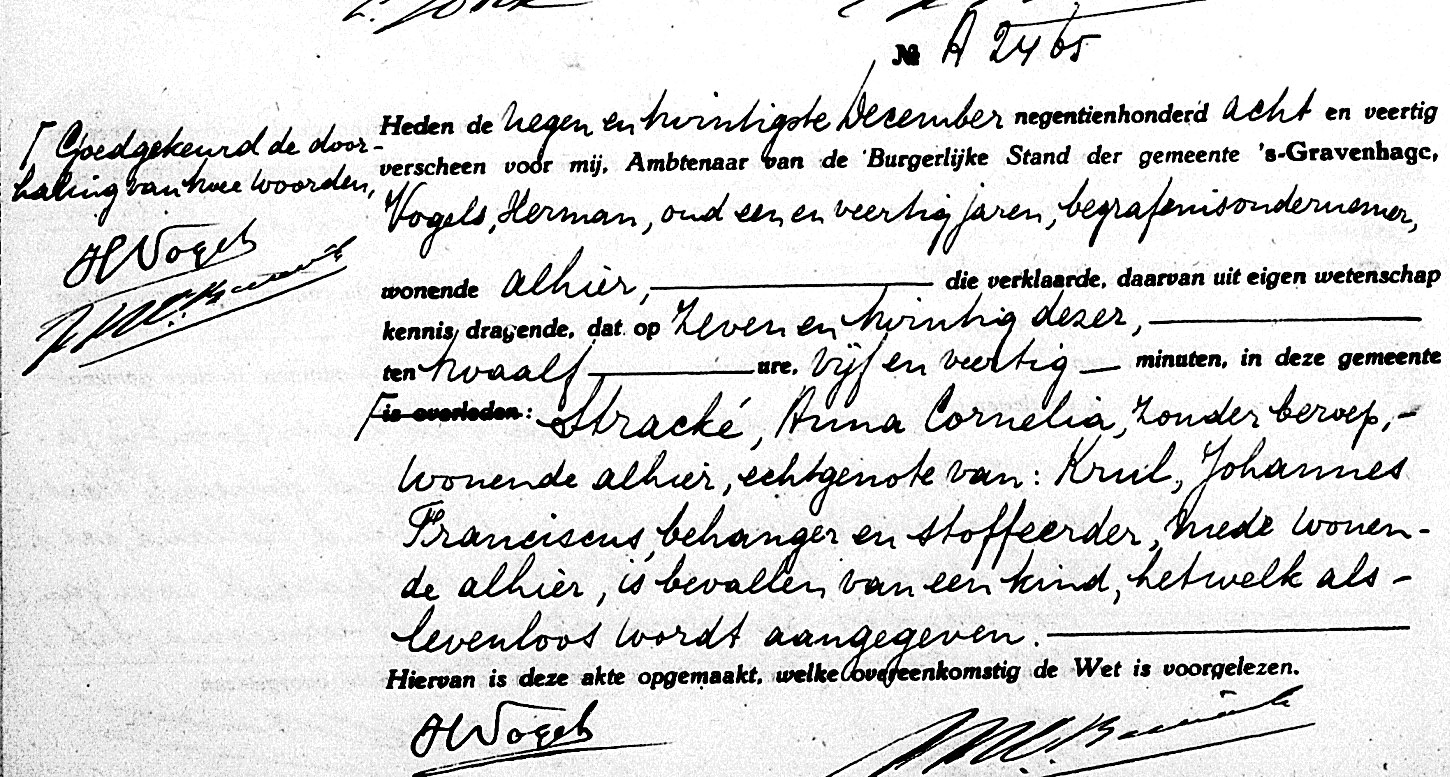 № A 2465
Heden de negen en twintigste December negentienhonderd acht en veertig
verscheen voor mij, Ambtenaar van de Burgerlijke Stand der gemeente 's-Gravenhage,
Vogels, Herman, oud een en veertig jaren, begrafenisondernemer,
wonende alhier, die verklaarde, daarvan uit eigen wetenschap
kennis dragende, dat op zeven en twintig dezer,
ten twaalf ure, vijf en veertig minuten, in deze gemeente
is overleden: Stracké, Anna Cornelia, zonder beroep,-
wonende alhier, echtgenote van: Krul, Johannes
Franciscus, behanger en stoffeerder, mede wonen-
de alhier, is bevallen van een kind, hetwelk als-
levenloos wordt aangegeven.
Hiervan is deze akte opgemaakt, welke overeenkomstig de Wet is voorgelezen.
HVogels
Goedgekeurd de door-
haling van twee woorden,
HVogels